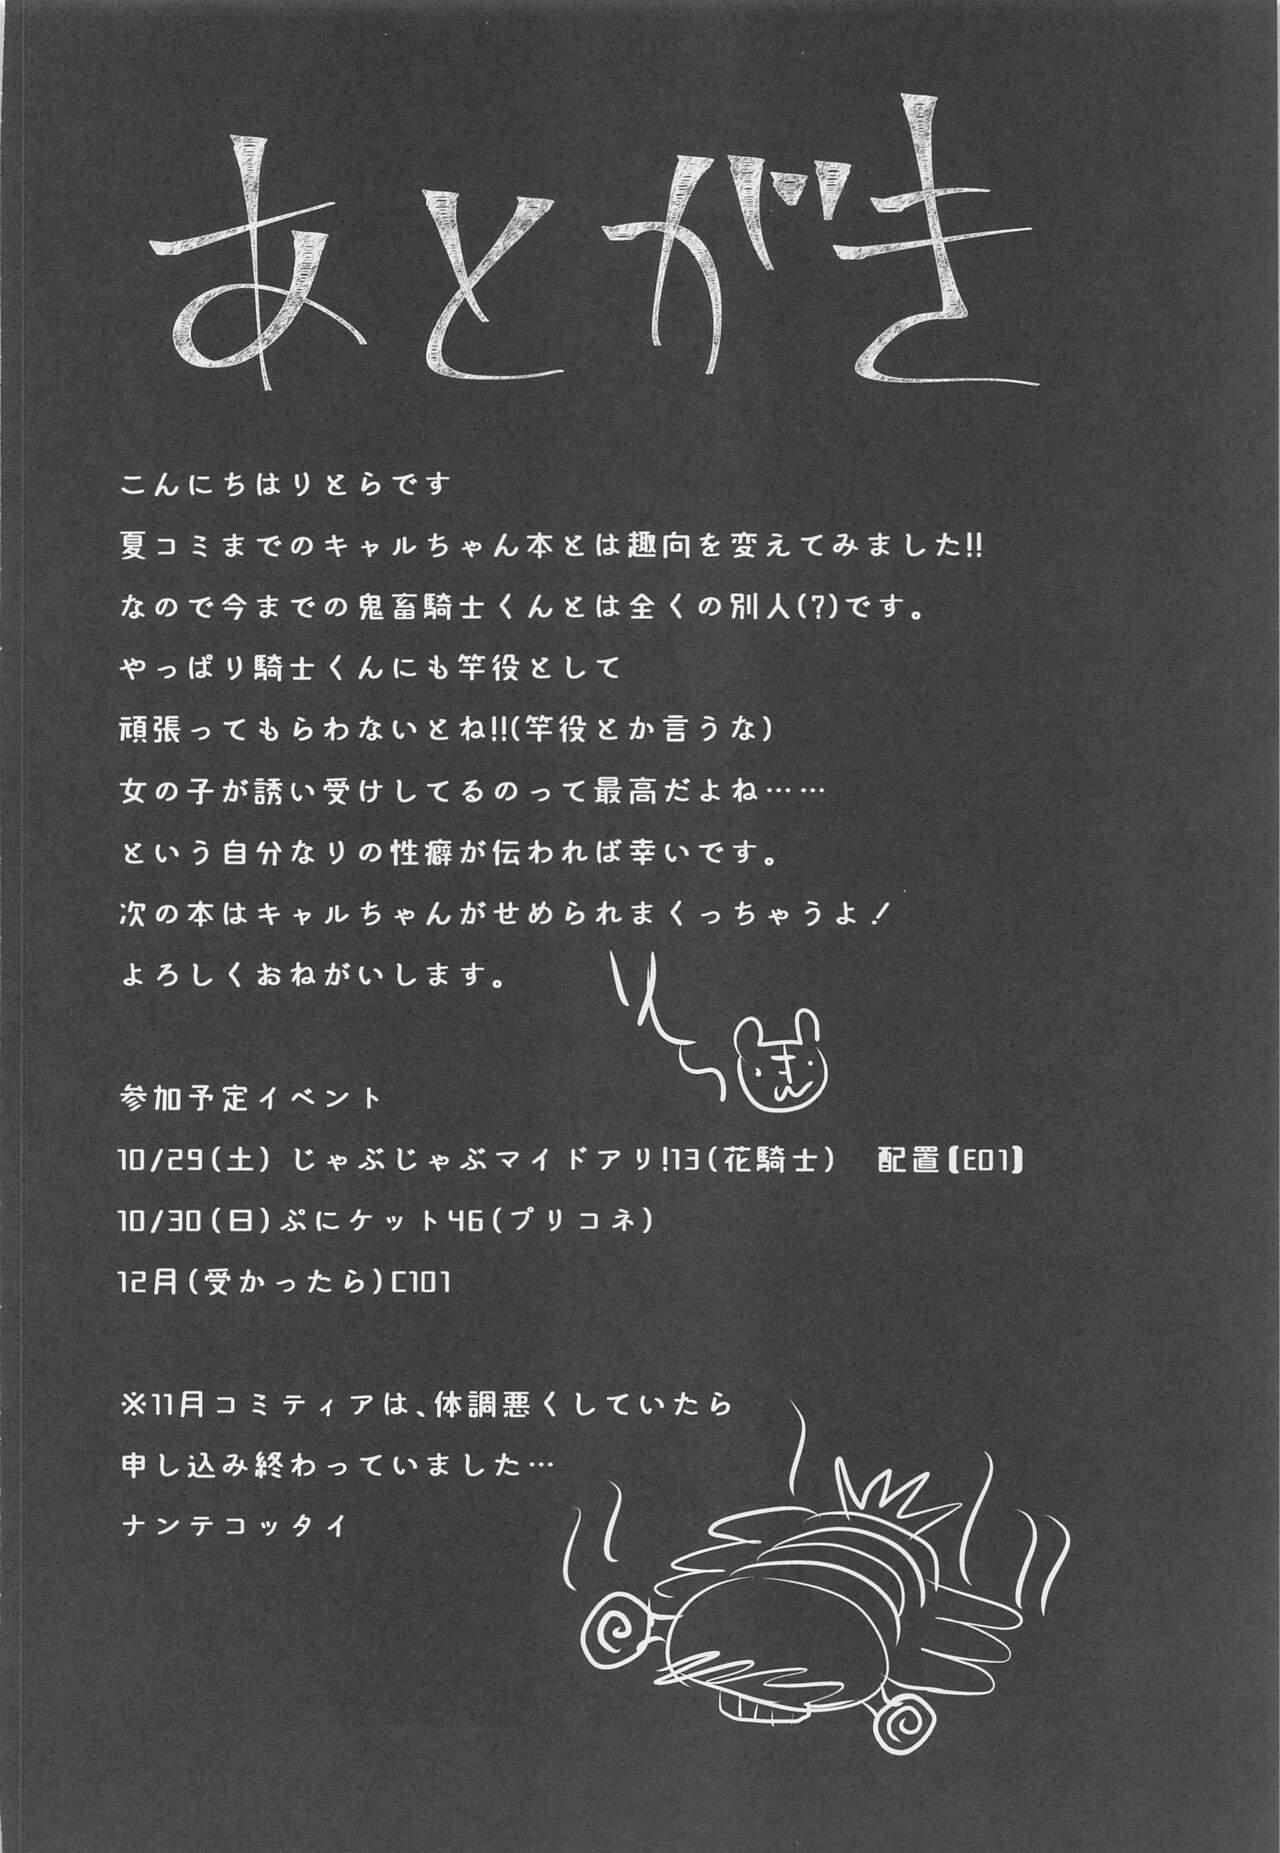 あとがき
こんにちはりとらです
夏コミまでのキャルちゃん本とは趣向を変えてみました!!
なので今までの鬼畜騎士くんとは全くの別人(?)です。
やっぱり騎士くんにも竿役として
頑張ってもらわないとね!!(竿役とか言うな)
女の子が誘い受けしてるのって最高だよね……
という自分なりの性癖が伝われば幸いです。
次の本はキャルちゃんがせめられまくっちゃうよ!
よろしくおねがいします。
りとら
参加予定イベント
10/29(土) じゃぶじゃぶマイドアリ!13(花騎士)　配置【E01】
10/30(日)ぷにケット46(プリコネ)
12月(受かったら)C101
※11月コミティアは、体調悪くしていたら
申し込み終わっていました…
ナンテコッタイ